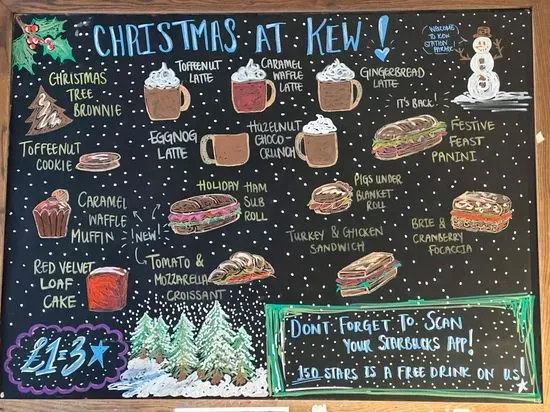 CHRISTMAS AT KEW!
WELCOME
TO KEW
STATION
CHRISTMAS
TREE
BROWNIE
TOFFEENUT
LATTE
CARAMEL
WAFFLE
LATTE
GINGERBREAD
LATTE
IT'S BACK!
TOFFEENUT
COOKIE
EGGNOG
LATTE
HAZELNUT
CHOCO-
CRUNCH
FESTIVE
FEAST
PANINI
CARAMEL
WAFFLE
MUFFIN
!NEW!
HOLIDAY HAM
SUB
ROLL
PIGS UNDER
BLANKET
ROLL
BRIE &
CRANBERRY
FOCACCIA
TURKEY & CHICKEN
SANDWICH
RED VELVET
LOAF
CAKE
TOMATO &
MOZZARELLA
CROISSANT
£1=3
DONT FORGET TO SCAN
YOUR STARBUCKS APP!
150 STARS IS A FREE DRINK ON US!